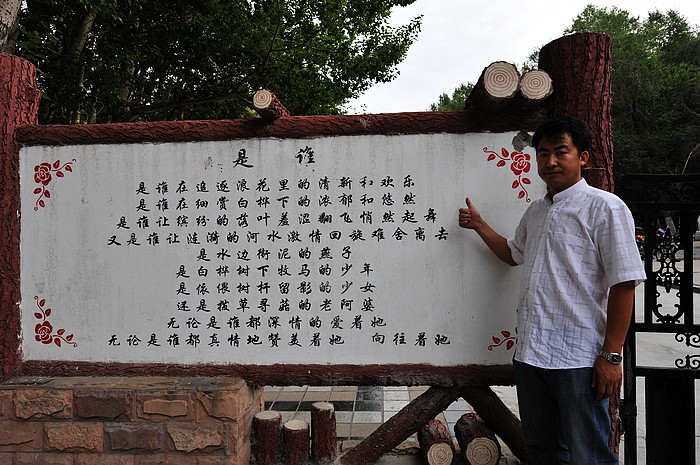 是 谁
是谁在追逐浪花里的清新和欢乐
是谁在细赏白桦下的浓郁和悠然
是谁让缤纷的落叶羞涩翩飞悄然起舞
又是谁让涟漪的河水激情回旋难舍离去
是水边衔泥的燕子
是白桦树下牧马的少年
是依偎树杆留影的少女
还是拔草寻菇的老阿婆
无论是谁都深情的爱着她
无论是谁都真情地赞美着她 向往着她